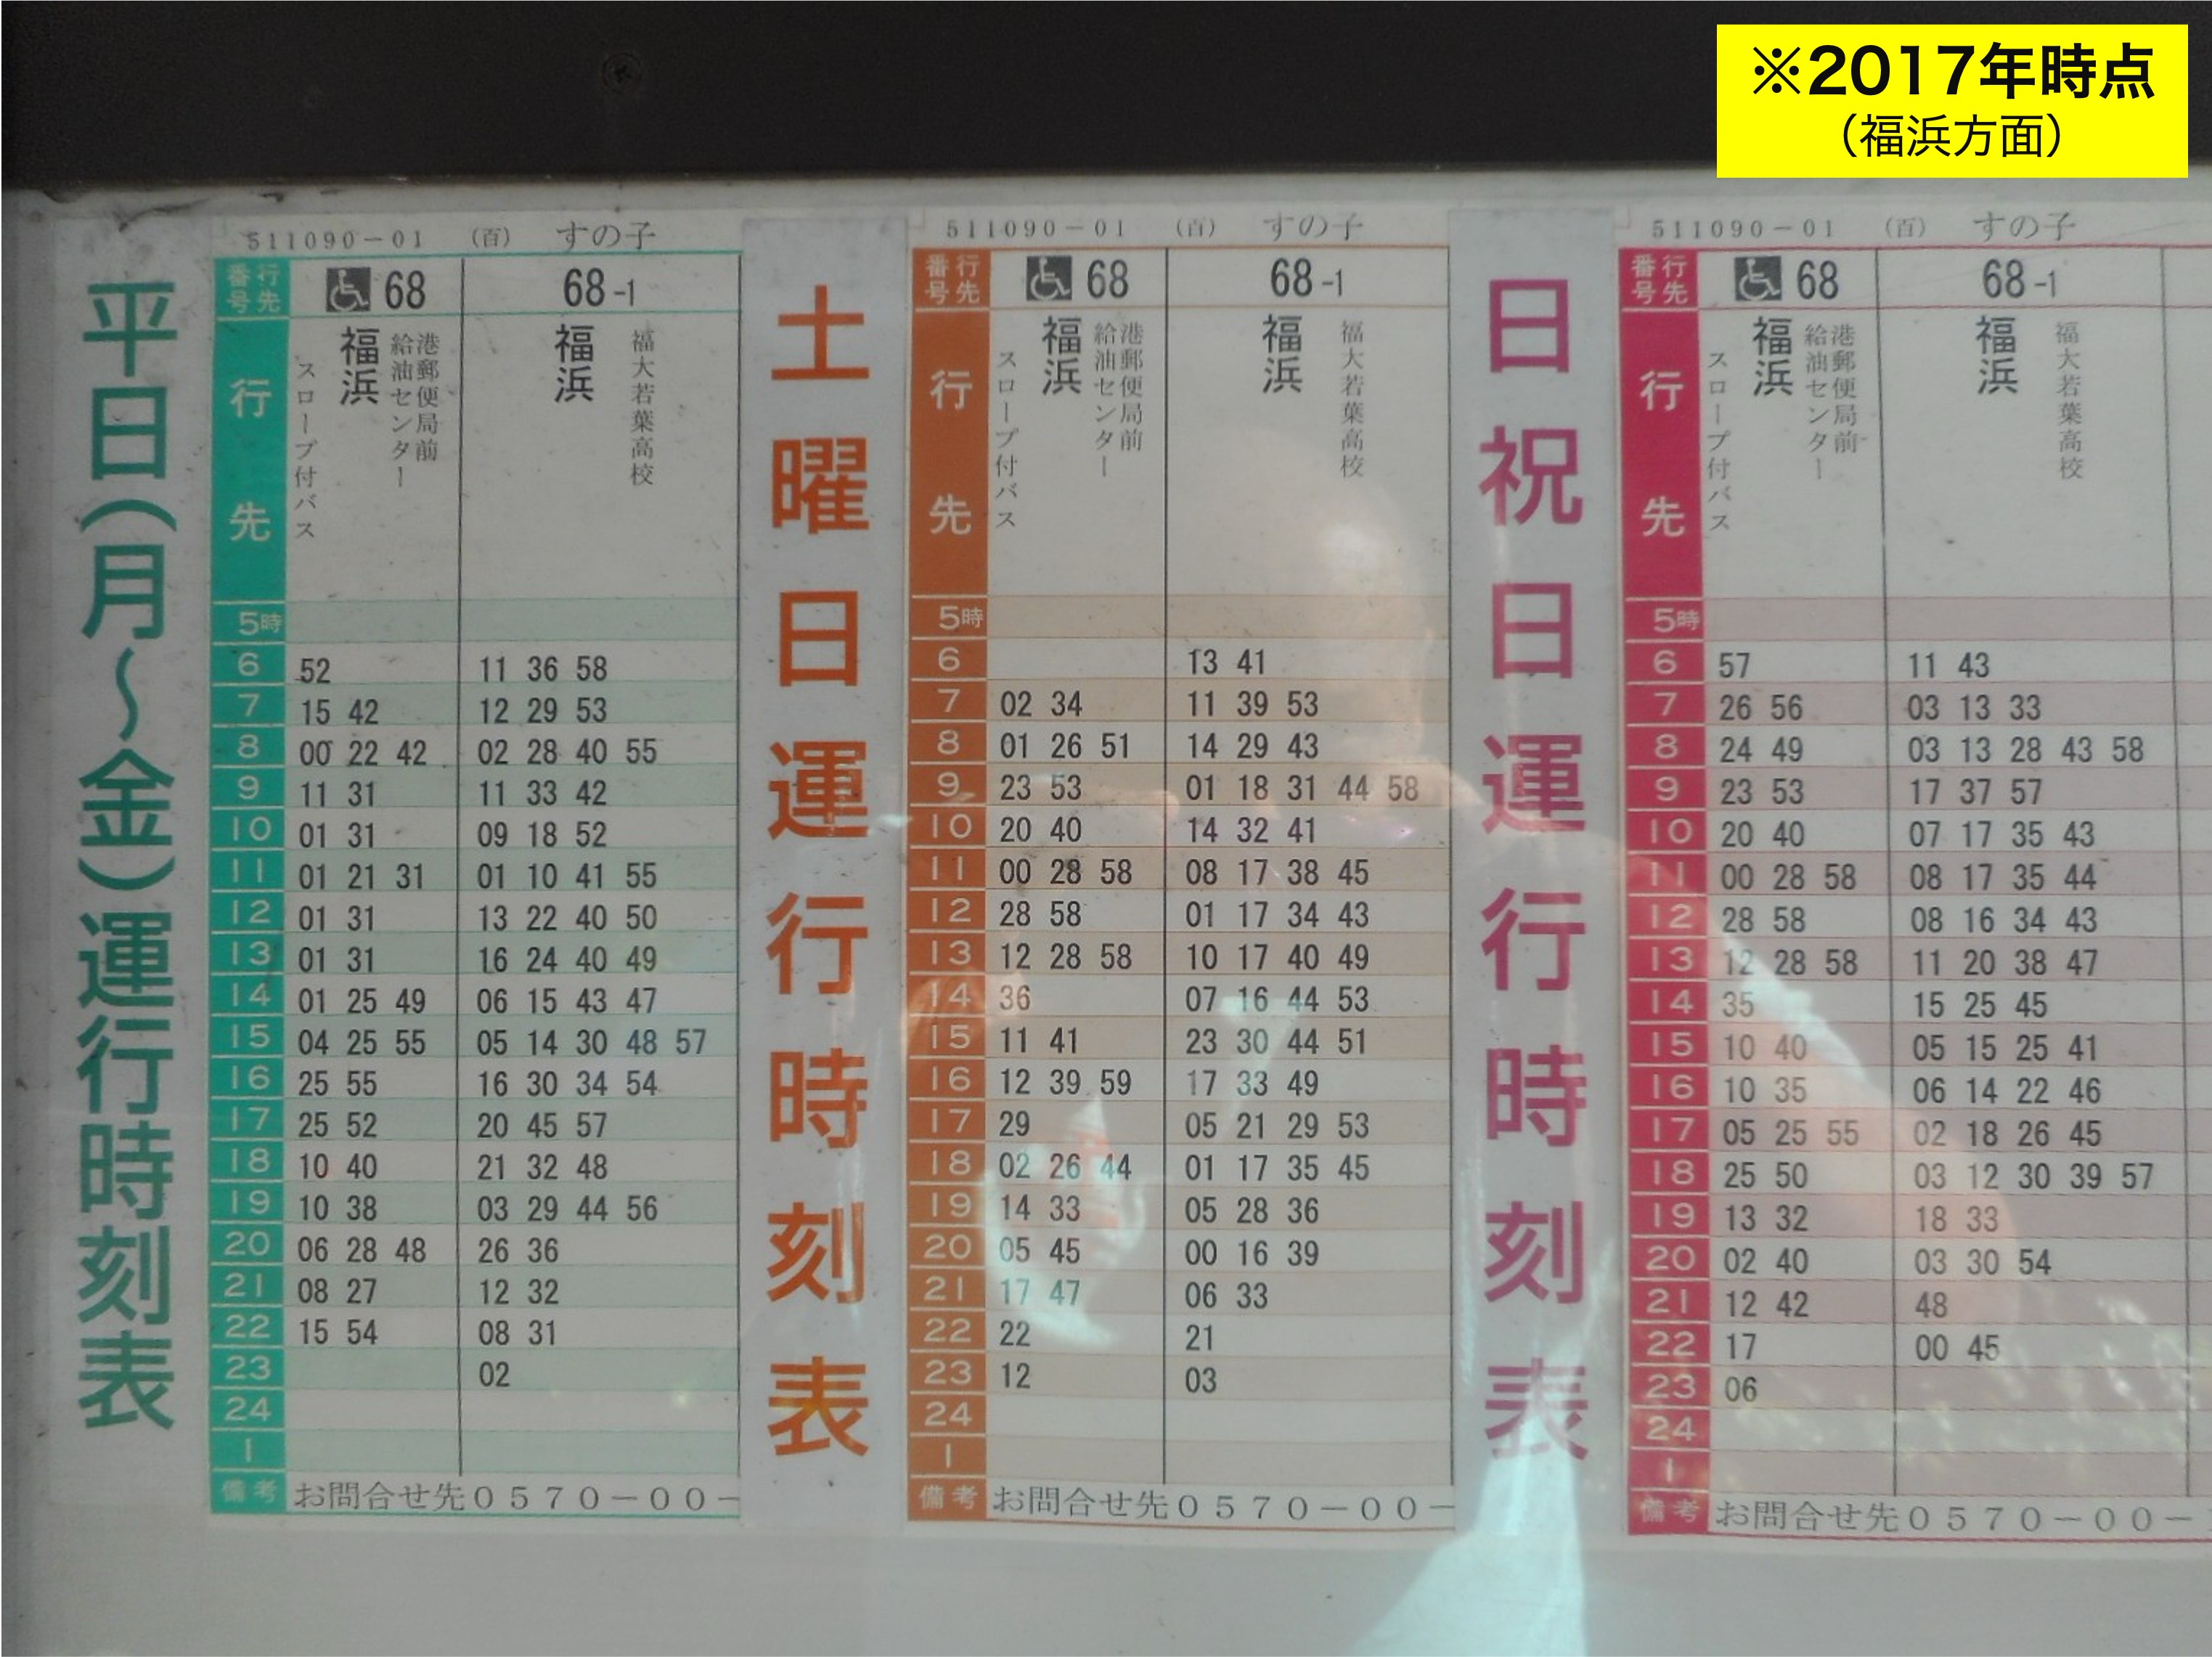 ※2017年時点
（福浜方面）
平日(月～金)運行時刻表
511090-01 (百) すの子
行先番号 68 68-1
行先 スロープ付バス 福浜 給油センター 港郵便局前 福浜 福大若葉高校
5時
6 52 11 36 58
7 15 42 12 29 53
8 00 22 42 02 28 40 55
9 11 31 11 33 42
10 01 31 09 18 52
11 01 21 31 01 10 41 55
12 01 31 13 22 40 50
13 01 31 16 24 40 49
14 01 25 49 06 15 43 47
15 04 25 55 05 14 30 48 57
16 25 55 16 30 34 54
17 25 52 20 45 57
18 10 40 21 32 48
19 10 38 03 29 44 56
20 06 28 48 26 36
21 08 27 12 32
22 15 54 08 31
23 02
24
1
備考 お問合せ先0570-00-
土曜日運行時刻表
511090-01 (百) すの子
行先番号 68 68-1
行先 スロープ付バス 福浜 給油センター 港郵便局前 福浜 福大若葉高校
5時
6 13 41
7 02 34 11 39 53
8 01 26 51 14 29 43
9 23 53 01 18 31 44 58
10 20 40 14 32 41
11 00 28 58 08 17 38 45
12 28 58 01 17 34 43
13 12 28 58 10 17 40 49
14 36 07 16 44 53
15 11 41 23 30 44 51
16 12 39 59 17 33 49
17 29 05 21 29 53
18 02 26 44 01 17 35 45
19 14 33 05 28 36
20 05 45 00 16 39
21 17 47 06 33
22 22 21
23 12 03
24
1
備考 お問合せ先0570-00-
日祝日運行時刻表
511090-01 (百) すの子
行先番号 68 68-1
行先 スロープ付バス 福浜 給油センター 港郵便局前 福浜 福大若葉高校
5時
6 57 11 43
7 26 56 03 13 33
8 24 49 03 13 28 43 58
9 23 53 17 37 57
10 20 40 07 17 35 43
11 00 28 58 08 17 35 44
12 28 58 08 16 34 43
13 12 28 58 11 20 38 47
14 35 15 25 45
15 10 40 05 15 25 41
16 10 35 06 14 22 46
17 05 25 55 02 18 26 45
18 25 50 03 12 30 39 57
19 13 32 18 33
20 02 40 03 30 54
21 12 42 48
22 17 00 45
23 06
24
1
備考 お問合せ先0570-00-